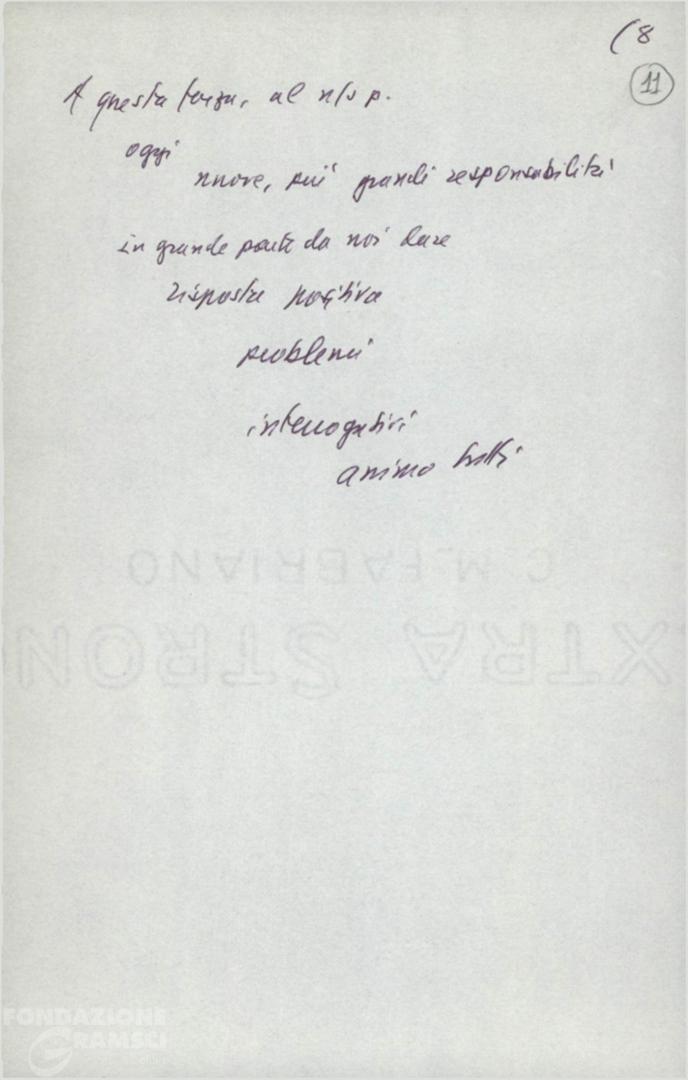 (8
11
A questa forza, al n/s p.
oggi
nuove, più grandi responsabilità
in grande parte da noi dare
risposta positiva
problemi
interrogativi
animo tutti
C.M. FABRIANO
XTRA STRON
FONDAZIONE
GRAMSCI